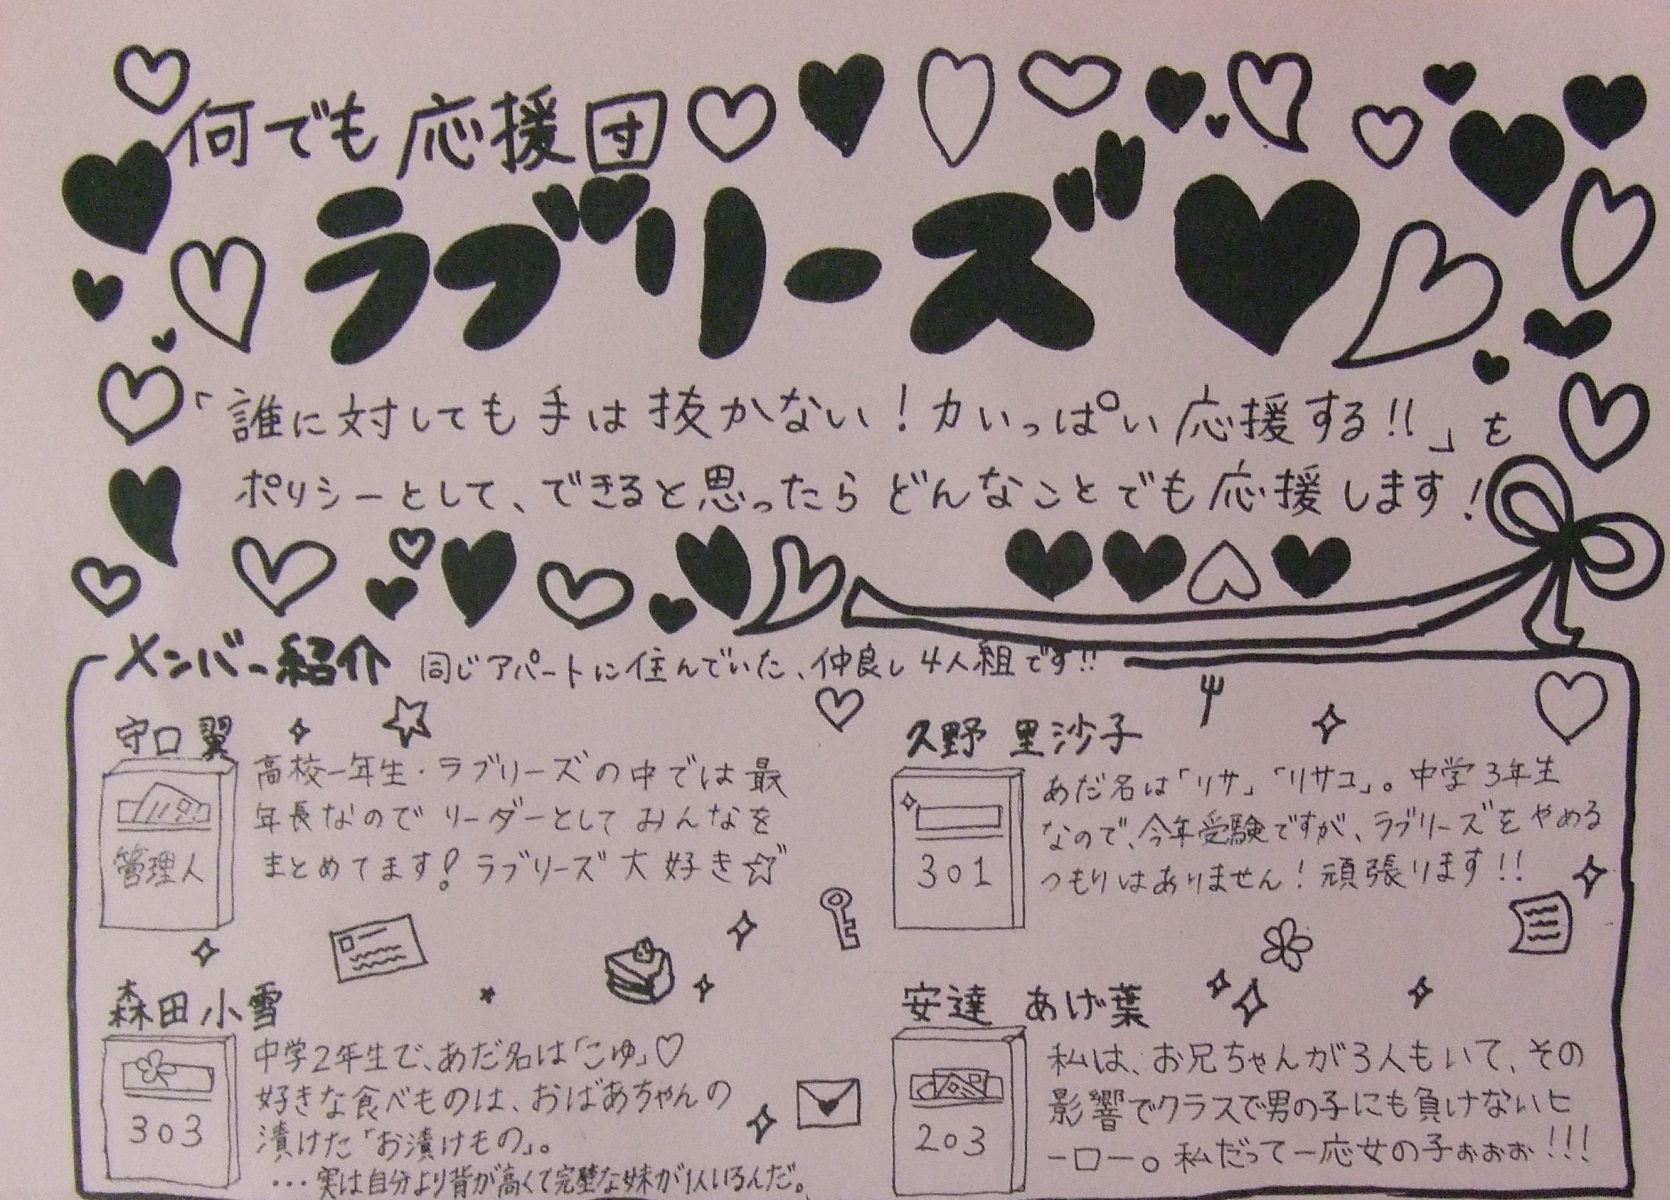 何でも応援団
ラブリーズ
「誰に対しても手は抜かない！力いっぱい応援する!!」を
ポリシーとして、できると思ったらどんなことでも応援します！
メンバー紹介 同じアパートに住んでいた、仲良し4人組です!!
守口翼
高校一年生・ラブリーズの中では最
年長なのでリーダーとしてみんなを
まとめてます！ラブリーズ大好き☆
管理人
久野 里沙子
あだ名は「リサ」「リサコ」。中学3年生
なので、今年受験ですが、ラブリーズをやめる
つもりはありません！頑張ります!!
301
森田小雪
中学2年生で、あだ名は「こゆ」♡
好きな食べものは、おばあちゃんの
漬けた「お漬けもの」。
…実は自分より背が高くて完璧な妹が1人いるんだ。
303
安達 あげ葉
私は、お兄ちゃんが3人もいて、その
影響でクラスで男の子にも負けないヒ
ーロー。私だって一応女の子ぉぉぉ!!!
203